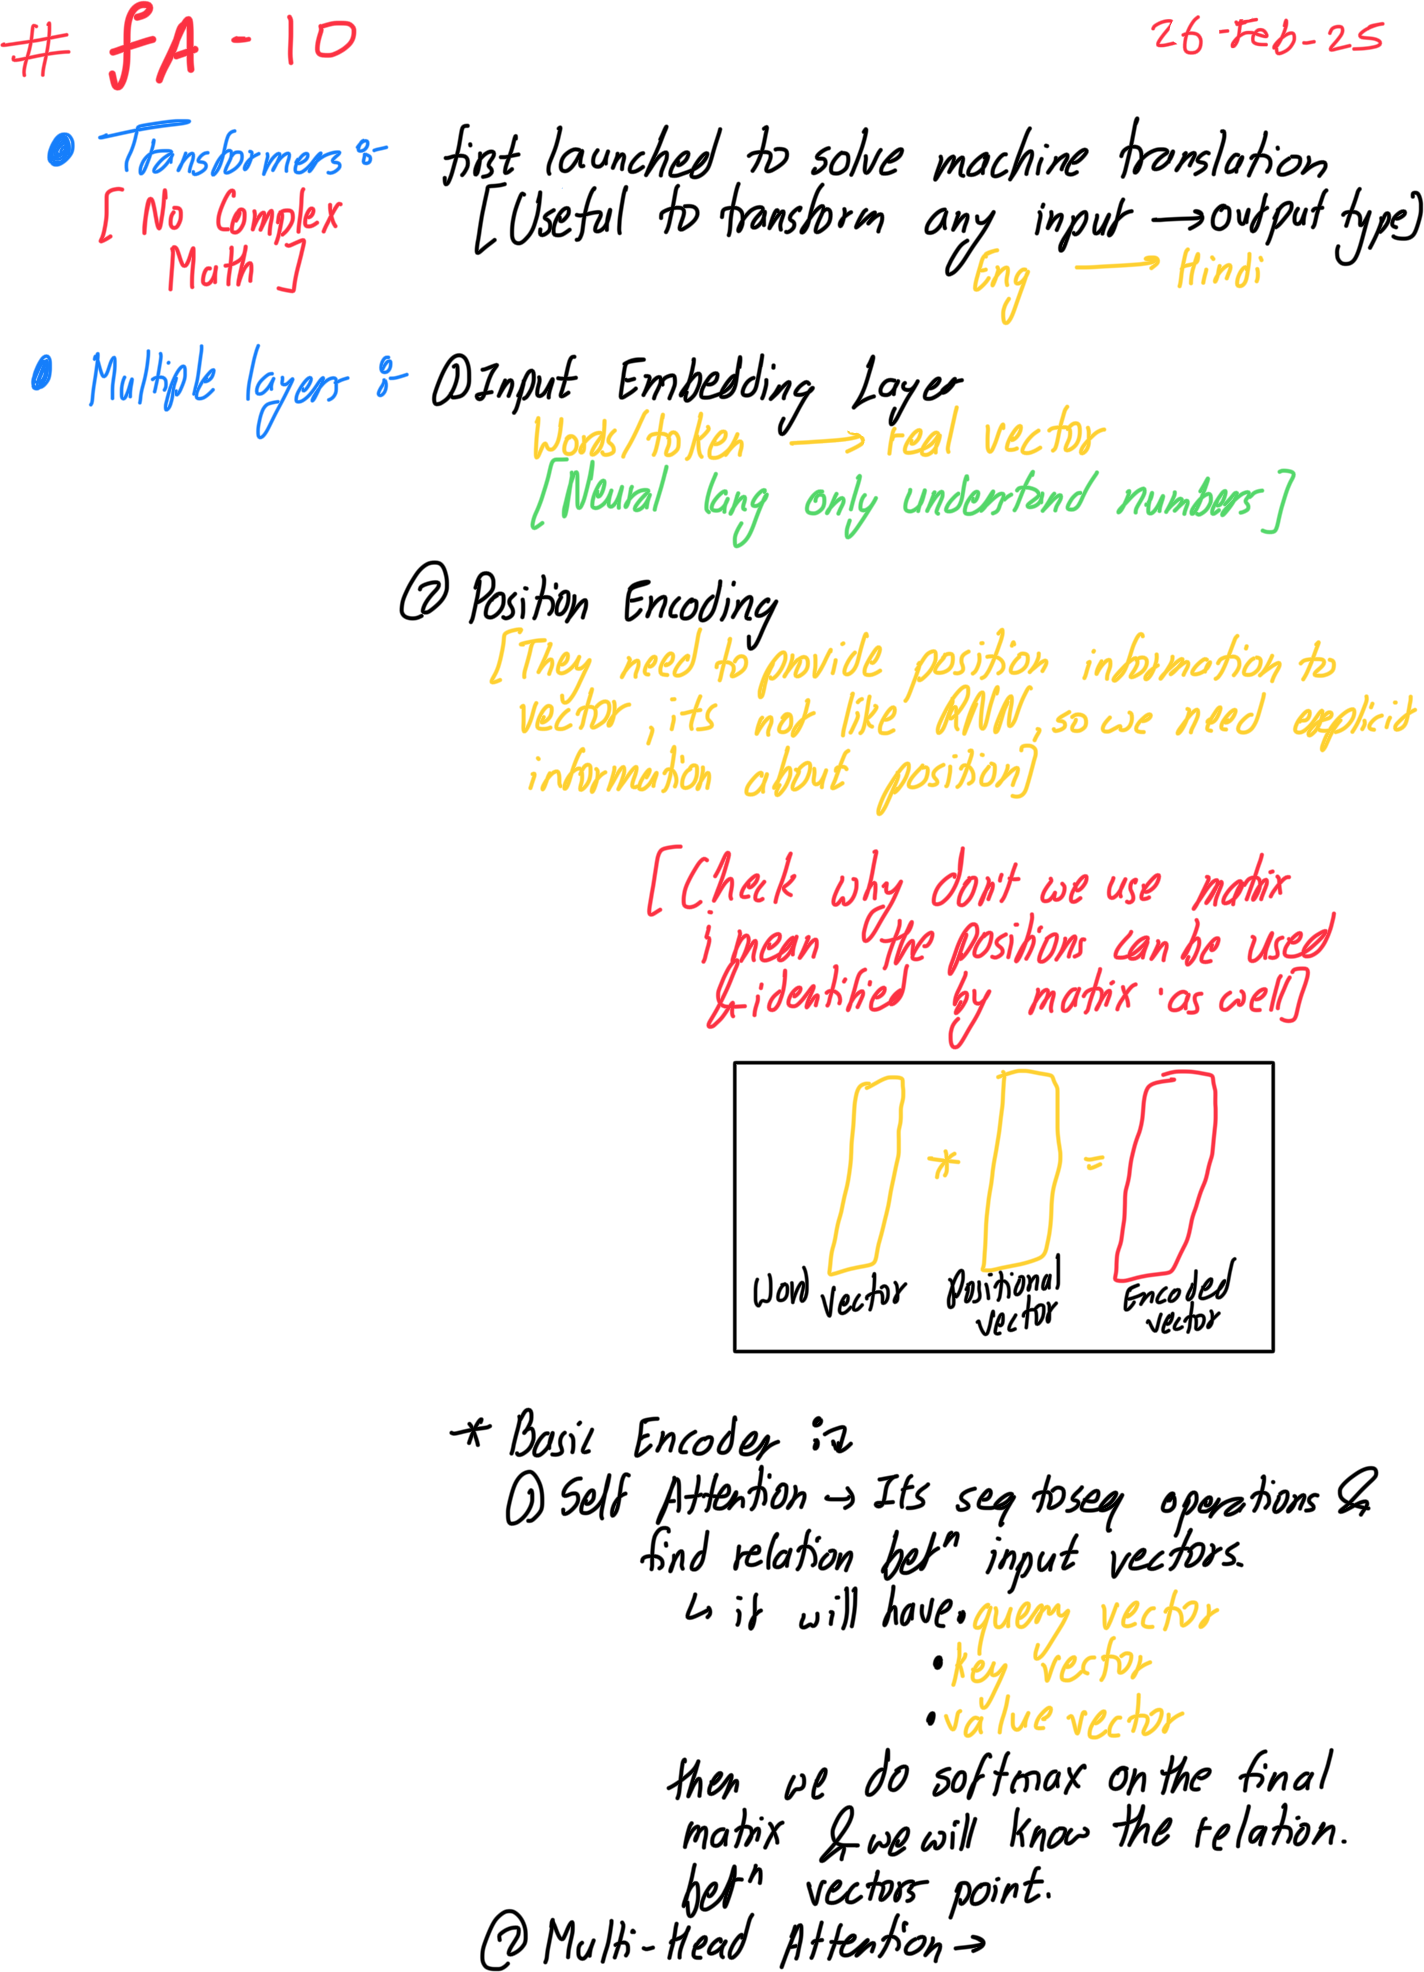 # fA - 10
26-Feb-25
Transformers :-
first launched to solve machine translation
[ No Complex
Math ]
[Useful to transform any input → output type]
Eng → Hindi
Multiple layers :-
① Input Embedding Layer
Words/token → real vector
[Neural lang only understand numbers]
② Position Encoding
[They need to provide position information to
vector, its not like RNN, so we need explicit
information about position]
[Check why don't we use matrix
i mean the positions can be used
& identified by matrix as well]
* =
Word vector
Positional
vector
Encoded
vector
* Basic Encoder :→
① Self Attention → Its seq to seq operations &
find relation betⁿ input vectors.
↳ it will have • query vector
• key vector
• value vector
then we do softmax on the final
matrix & we will know the relation.
betⁿ vectors point.
② Multi-Head Attention →